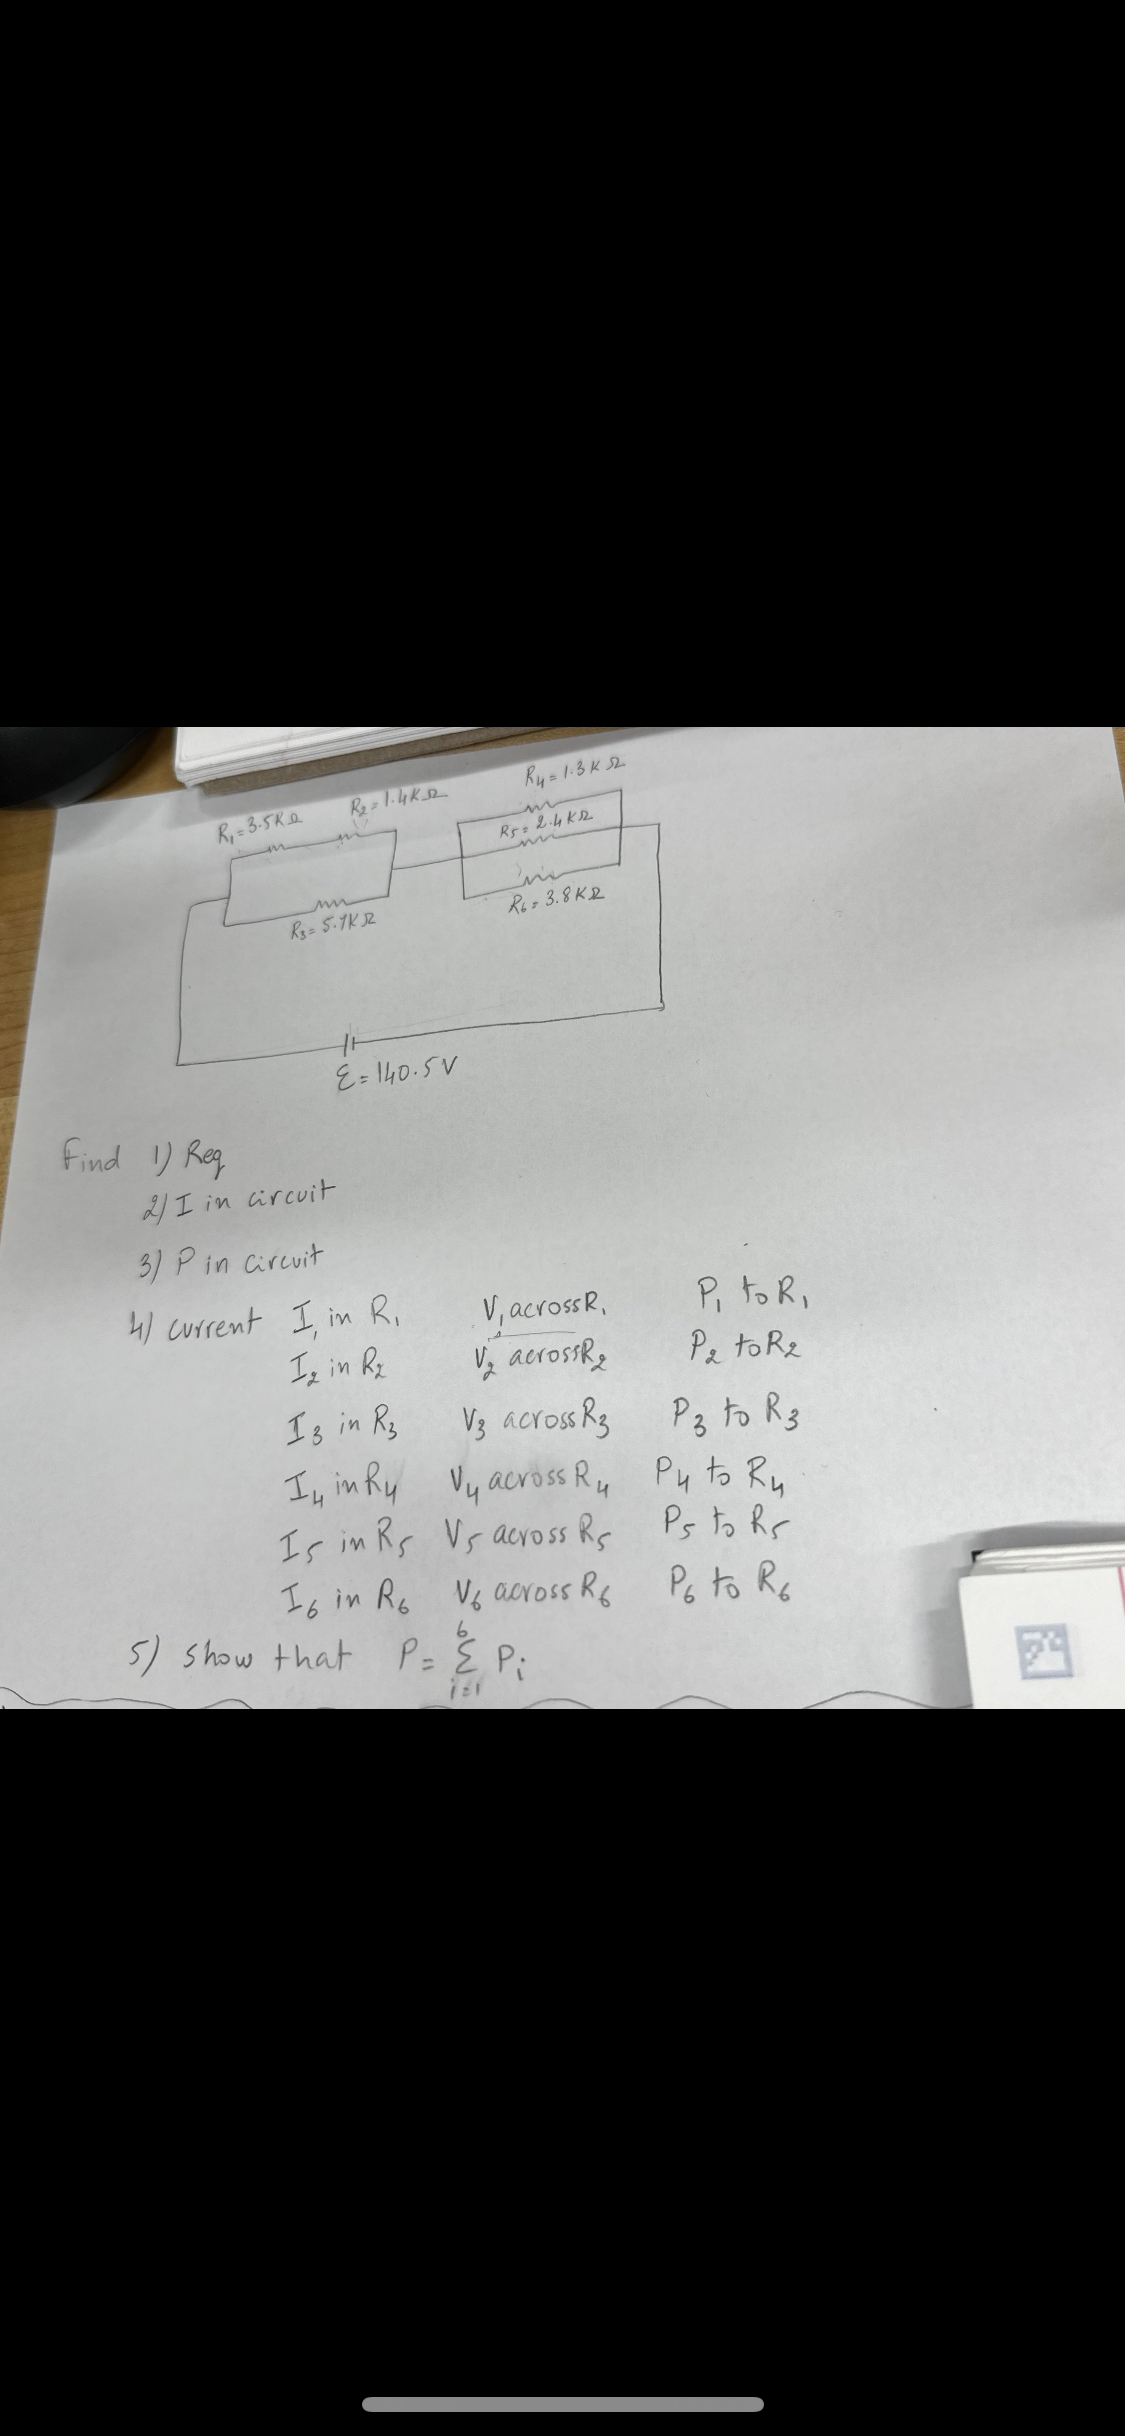 R₄=1.3KΩ
R₁=3.5KΩ R₂=1.4KΩ
R₅=2.4KΩ
R₆=3.8KΩ
R₃=5.7KΩ
Ɛ=140.5V
Find 1) Req
2) I in circuit
3) P in circuit
4) current I₁ in R₁ V₁ across R₁ P₁ to R₁
I₂ in R₂ V₂ across R₂ P₂ to R₂
I₃ in R₃ V₃ across R₃ P₃ to R₃
I₄ in R₄ V₄ across R₄ P₄ to R₄
I₅ in R₅ V₅ across R₅ P₅ to R₅
I₆ in R₆ V₆ across R₆ P₆ to R₆
5) show that P = 6 Σ i=1 Pᵢ